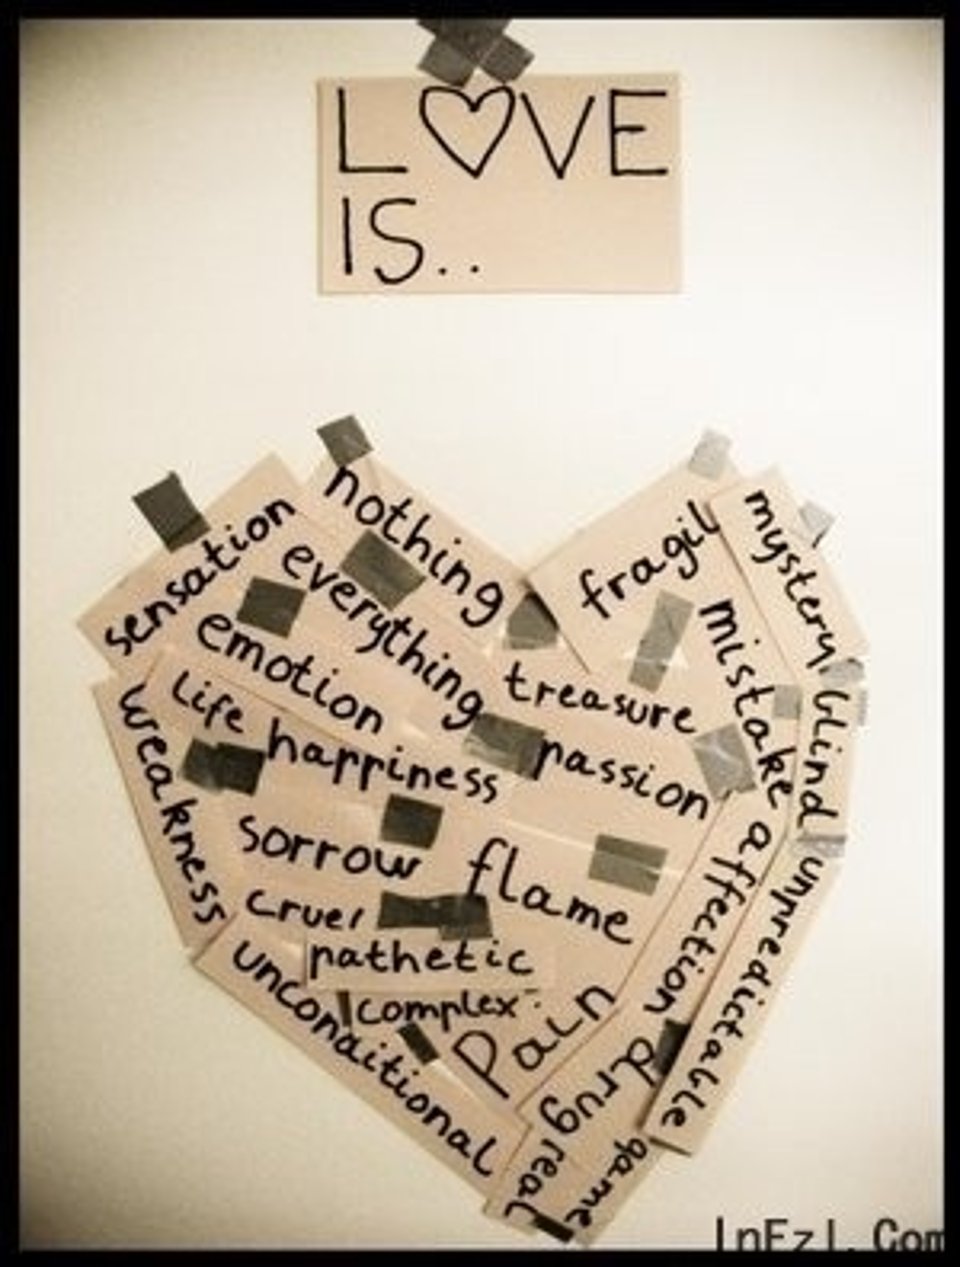 LOVE
IS..
nothing
sensation
everything
emotion
fragil
mystery
mistake
treasure
passion
life
happiness
weakness
blind
sorrow
flame
affection
unpredictable
cruel
pathetic
complex
unconditional
Pain
drug
real
game
InEzI.Com